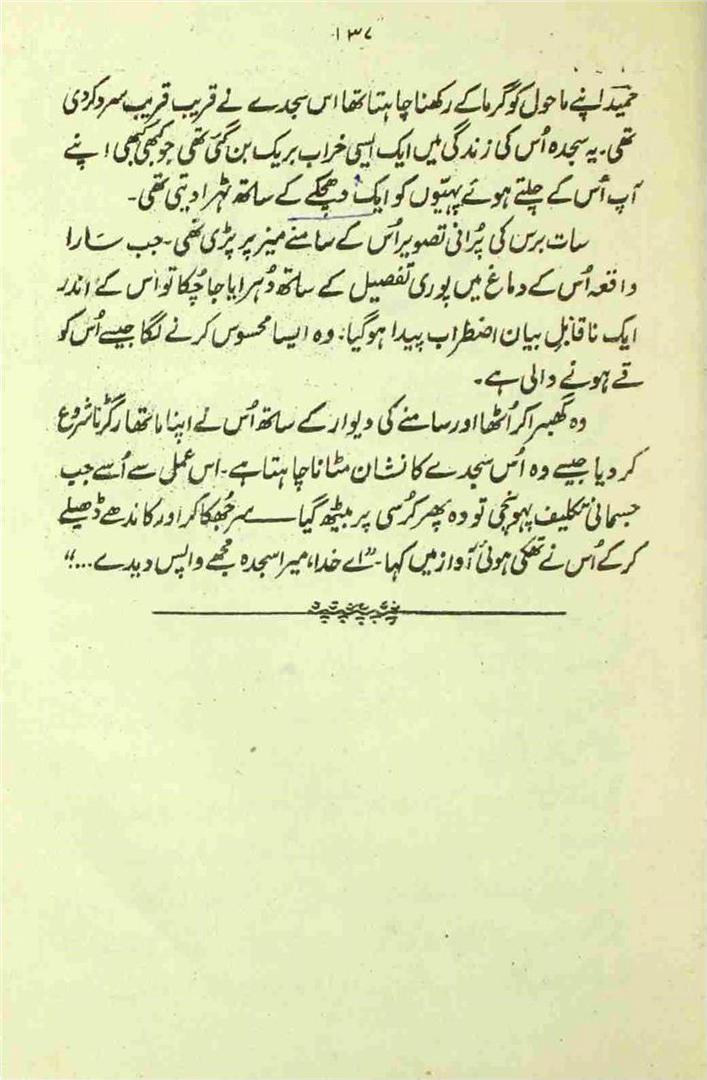 ۱۳۷
حمید اپنے ماحول کو گرما کے رکھنا چاہتا تھا اس سجدے نے قریب قریب سرد کر دی
تھی۔ یہ سجدہ اُس کی زندگی میں ایک ایسی خراب بریک بن گئی تھی جو کبھی کبھی اپنے
آپ اُس کے چلتے ہوئے پہیّوں کو ایک دھچکے کے ساتھ ٹہرا دیتی تھی۔
سات برس کی پُرانی تصویر اُس کے سامنے میز پر پڑی تھی۔ جب سارا
واقعہ اُس کے دماغ میں پوری تفصیل کے ساتھ دُہرایا جا چُکا تو اس کے اندر
ایک ناقابلِ بیان اضطراب پیدا ہو گیا۔ وہ ایسا محسوس کرنے لگا جیسے اُس کو
قے ہونے والی ہے۔
وہ گھبرا کر اُٹھا اور سامنے کی دیوار کے ساتھ اُس نے اپنا ماتھا رگڑنا شروع
کر دیا جیسے وہ اُس سجدے کا نشان مٹانا چاہتا ہے۔ اس عمل سے اُسے جب
جسمانی تکلیف پہونچی تو وہ پھر کُرسی پر بیٹھ گیا ــــ سر جُھکا کر اور کاندھے ڈھیلے
کر کے اُس نے تھکی ہوئی آواز میں کہا۔ ”اے خدا، میرا سجدہ مجھے واپس دیدے...“